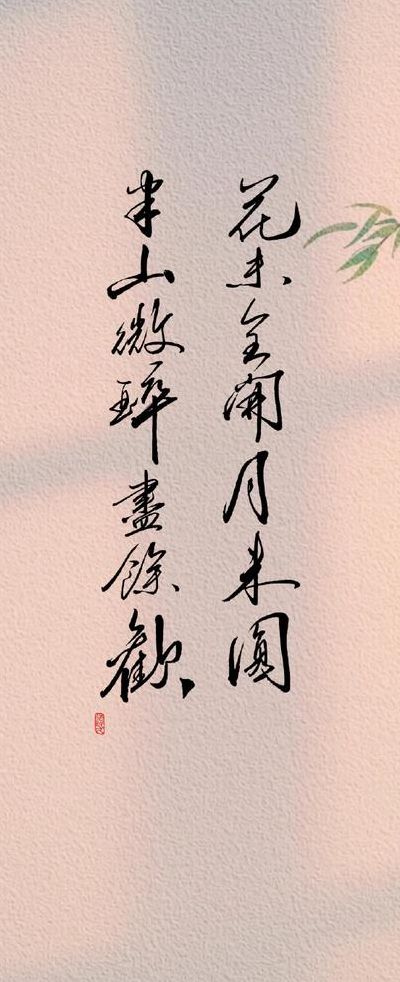 花未全開月未圓
半山微醉盡餘歡